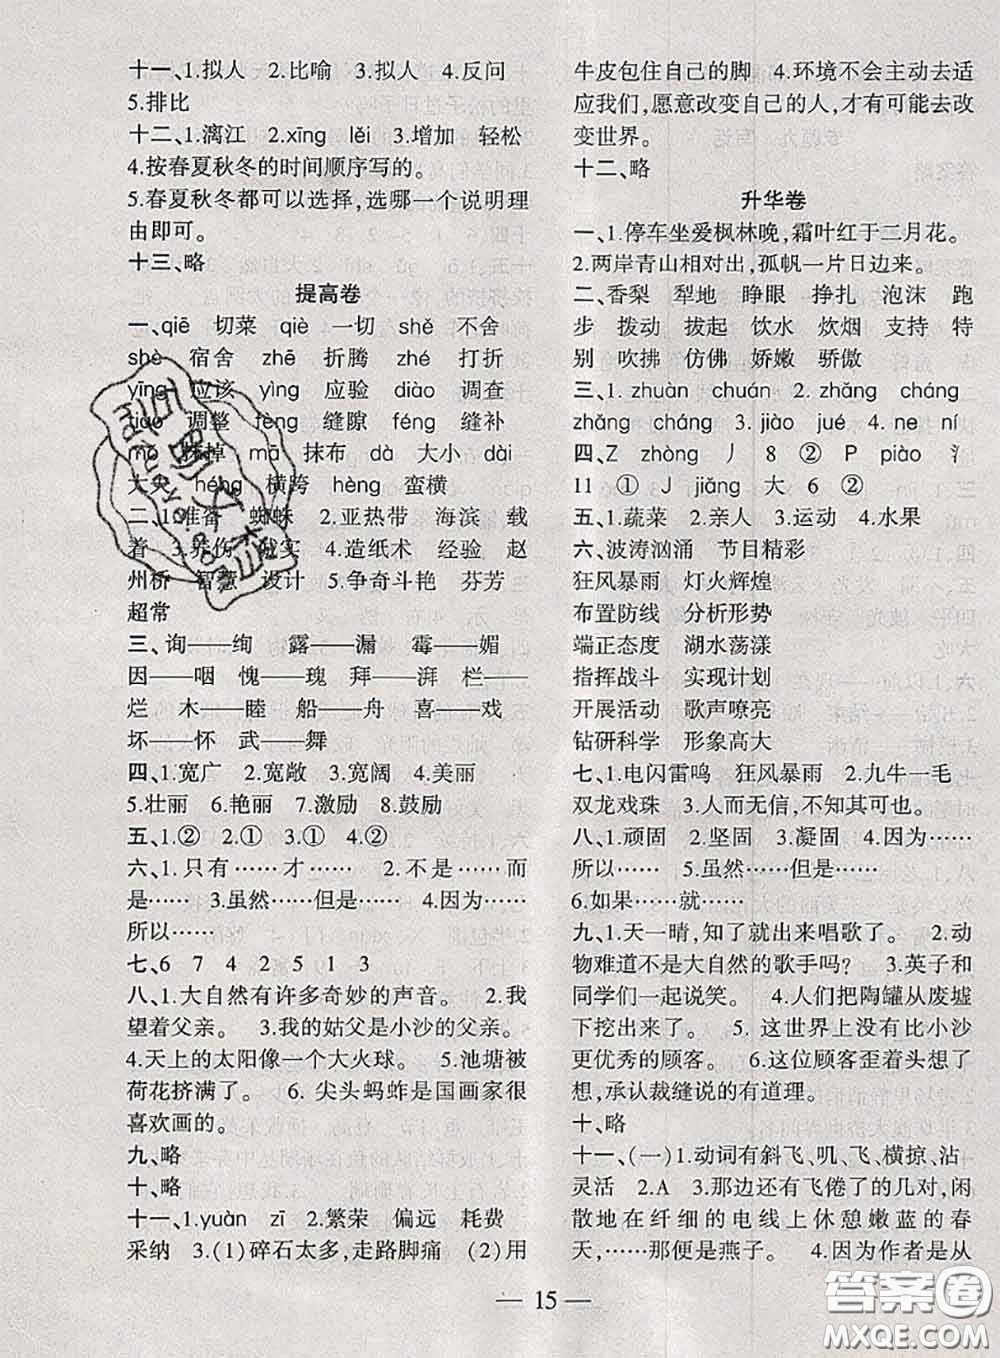 十一、1.拟人　2.比喻　3.拟人　4.反问
5.排比
十二、1.漓江　2.xīng　lěi　3.增加　轻松
4.按春夏秋冬的时间顺序写的。
5.春夏秋冬都可以选择，选哪一个说明理
由即可。
十三、略
提高卷
一、qiē　切菜　qiè　一切　shě　不舍
shè　宿舍　zhē　折腾　zhé　打折
yīng　应该　yìng　应验　diào　调查
tiáo　调整　fèng　缝隙　féng　缝补
mǒ　抹掉　mā　抹布　dà　大小　dài
大夫　héng　横跨　hèng　蛮横
二、1.准备　蜘蛛　2.亚热带　海滨　载
着　3.　战实　4.造纸术　经验　赵
州桥　智慧　设计　5.争奇斗艳　芬芳
超常
三、询——绚　露——漏　霉——媚
因——咽　愧——瑰　拜——湃　栏——
烂　木——睦　船——舟　喜——戏
坏——怀　武——舞
四、1.宽广　2.宽敞　3.宽阔　4.美丽
5.壮丽　6.艳丽　7.激励　8.鼓励
五、1.②　2.①　3.①　4.②
六、1.只有……才……　2.不是……而
是……　3.虽然……但是……　4.因为……
所以……
七、6　7　4　2　5　1　3
八、1.大自然有许多奇妙的声音。　2.我
望着父亲。　3.我的姑父是小沙的父亲。
4.天上的太阳像一个大火球。　5.池塘被
荷花挤满了。　6.尖头蚂蚱是国画家很
喜欢画的。
九、略
十、略
十一、1.yuàn　zī　2.繁荣　偏远　耗费
采纳　3.(1)碎石太多，走路脚痛　(2)用
牛皮包住自己的脚　4.环境不会主动去适
应我们，愿意改变自己的人，才有可能去改
变世界。
十二、略
升华卷
一、1.停车坐爱枫林晚，霜叶红于二月花。
2.两岸青山相对出，孤帆一片日边来。
二、香梨　犁地　睁眼　挣扎　泡沫　跑
步　拨动　拔起　饮水　炊烟　支持　特
别　吹拂　仿佛　娇嫩　骄傲
三、1.zhuàn　chuán　2.zhǎng　cháng
zhǎng　cháng　3.jiào　jué　4.ne　ní
四、Z　zhòng　丿　8　②　P　piào　氵
11　①　J　jiǎng　大　6　②
五、1.蔬菜　2.亲人　3.运动　4.水果
六、波涛汹涌　节目精彩
狂风暴雨　灯火辉煌
布置防线　分析形势
端正态度　湖水荡漾
指挥战斗　实现计划
开展活动　歌声嘹亮
钻研科学　形象高大
七、1.电闪雷鸣　狂风暴雨　2.九牛一毛
双龙戏珠　3.人而无信，不知其可也。
八、1.顽固　2.坚固　3.凝固　4.因为……
所以……　5.虽然……但是……
6.如果……就……
九、1.天一晴，知了就出来唱歌了。　2.动
物难道不是大自然的歌手吗？　3.英子和
同学们一起说笑。　4.人们把陶罐从废墟
下挖出来了。　5.这世界上没有比小沙
更优秀的顾客。　6.这位顾客歪着头想了
想，承认裁缝说的有道理。
十、略
十一、(一)1.动词有斜飞、叽、飞、横掠、沾
灵活　2.A　3.那边还有飞倦了的几对，闲
散地在纤细的电线上休憩嫩蓝的春
天，……那便是燕子。　4.因为作者是从
— 15 —
答案圈
MXQE.COM